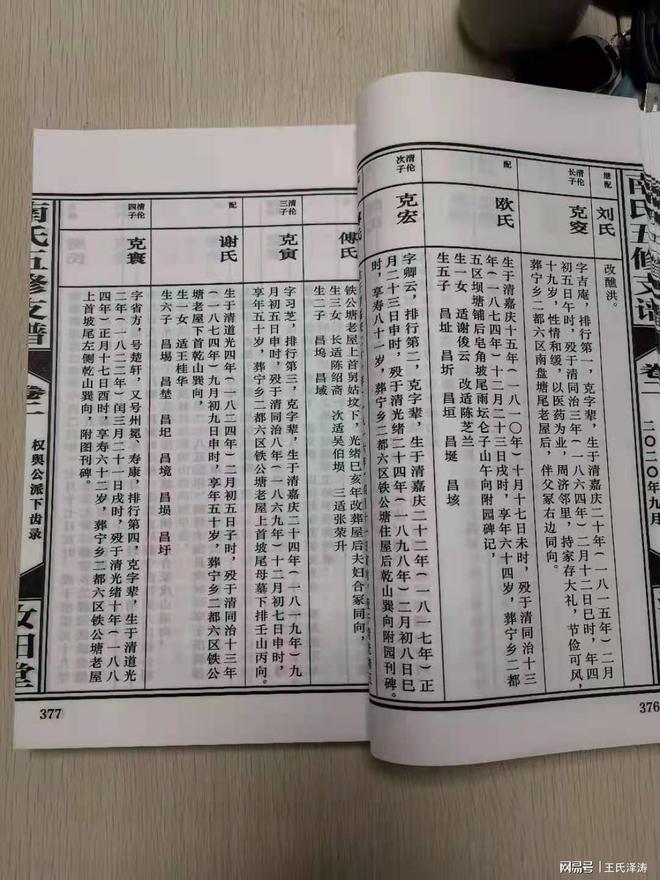 南氏五修支谱
二〇二〇年九月
376
继配
刘氏
改醮洪。
清伦长子
字吉庵，排行第一，克字辈，生于清嘉庆二十年(一八一五年)二月
初五日午时，殁于清同治三年(一八六四年)二月十二日巳时，年四
十九岁，性情和缓，以医药为业，周济邻里，持家存大礼，节俭可风，
葬宁乡二都六区南盘塘尾老屋后，伴父冢右边同向。
配
欧氏
生于清嘉庆十五年(一八一〇年)十月十七日未时，殁于清同治十三
年(一八七四年)十二月二十三日戌时，享年六十四岁，葬宁乡二都
五区坝塘铺后皂角坡尾雨坛仑子山午向附园碑记，
生一女 适谢俊云 改适陈芝兰
生五子 昌址 昌圻 昌垣 昌埏 昌垓
清伦次子
克宏
字卿云，排行第二，克字辈，生于清嘉庆二十二年(一八一七年)正
月二十三日申时，殁于清光绪二十四年(一八九八年)二月初八日巳
时，享寿八十一岁，葬宁乡二都六区铁公塘住屋后乾山巽向附园刊碑。
傅氏
铁公塘老屋上首舅姑坟下，光绪己亥年改葬屋后夫妇合冢同向，
生三女 长适陈绍斋 次适吴伯埙 三适张荣升
生二子 昌坞 昌域
清伦三子
克寅
字习芝，排行第三，克字辈，生于清嘉庆二十四年(一八一九年)九
月初五日申时，殁于清同治八年(一八六九年)十二月初七日申时，
享年五十岁，葬宁乡二都六区铁公塘老屋上首坡尾母墓下排壬山丙向。
配
谢氏
生于清道光四年(一八二四年)二月初五日子时，殁于清同治十三年
(一八七四年)九月初九日申时，享年五十岁，葬宁乡二都六区铁公
塘老屋下首乾山巽向，
生一女 适王桂华
生六子 昌埸 昌埜 昌圯 昌境 昌埙 昌圩
清伦四子
克寰
字省方，号楚轩，又号州冕，寿康，排行第四，克字辈，生于清道光
二年(一八二二年)闰三月二十一日戌时，殁于清光绪十年(一八八
四年)正月十七日酉时，享寿六十二岁，葬宁乡二都六区铁公塘老屋
上首坡尾左侧乾山巽向，附图刊碑。
南氏五修支谱
权舆公派下齿录
377
网易号 | 王氏泽涛